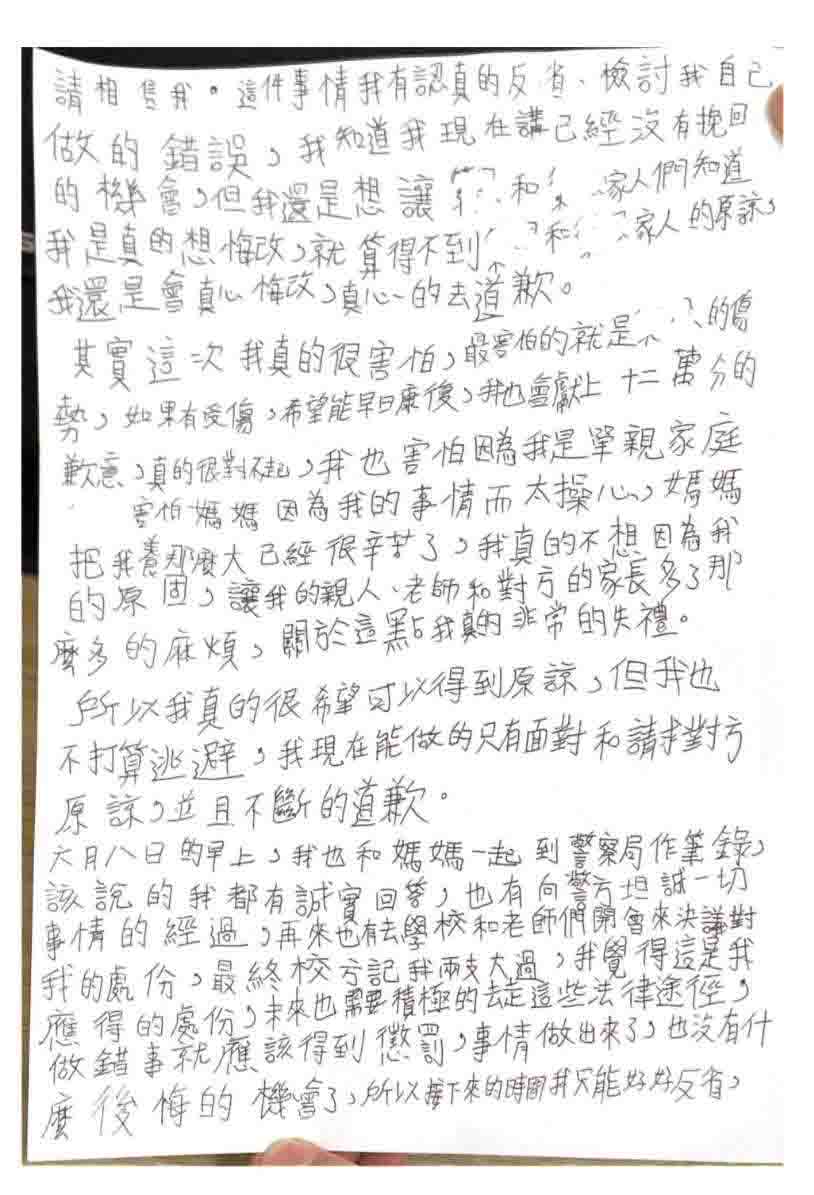 請相信我。這件事情我有認真的反省、檢討我自己
做的錯誤，我知道我現在講已經沒有挽回
的機會，但我還是想讓 和 家人們知道
我是真的想悔改，就算得不到 和 家人的原諒，
我還是會真心悔改，真心的去道歉。
其實這次我真的很害怕，最害怕的就是 的傷
勢，如果有受傷，希望能早日康復，我也會獻上十二萬分的
歉意，真的很對不起，我也害怕因為我是單親家庭
害怕媽媽因為我的事情而太操心，媽媽
把我養那麼大已經很辛苦了，我真的不想因為我
的原固，讓我的親人、老師和對方的家長多了那
麼多的麻煩，關於這點我真的非常的失禮。
所以我真的很希望可以得到原諒，但我也
不打算逃避，我現在能做的只有面對和請求對方
原諒，並且不斷的道歉。
六月八日的早上，我也和媽媽一起到警察局作筆錄，
該說的我都有誠實回答，也有向警方坦誠一切
事情的經過，再來也有去學校和老師們開會來決議對
我的處份，最終校方記我兩支大過，我覺得這是我
應得的處份，未來也需要積極的去走這些法律途徑，
做錯事就應該得到懲罰，事情做出來了，也沒有什
麼後悔的機會了，所以接下來的時間我只能好好反省，